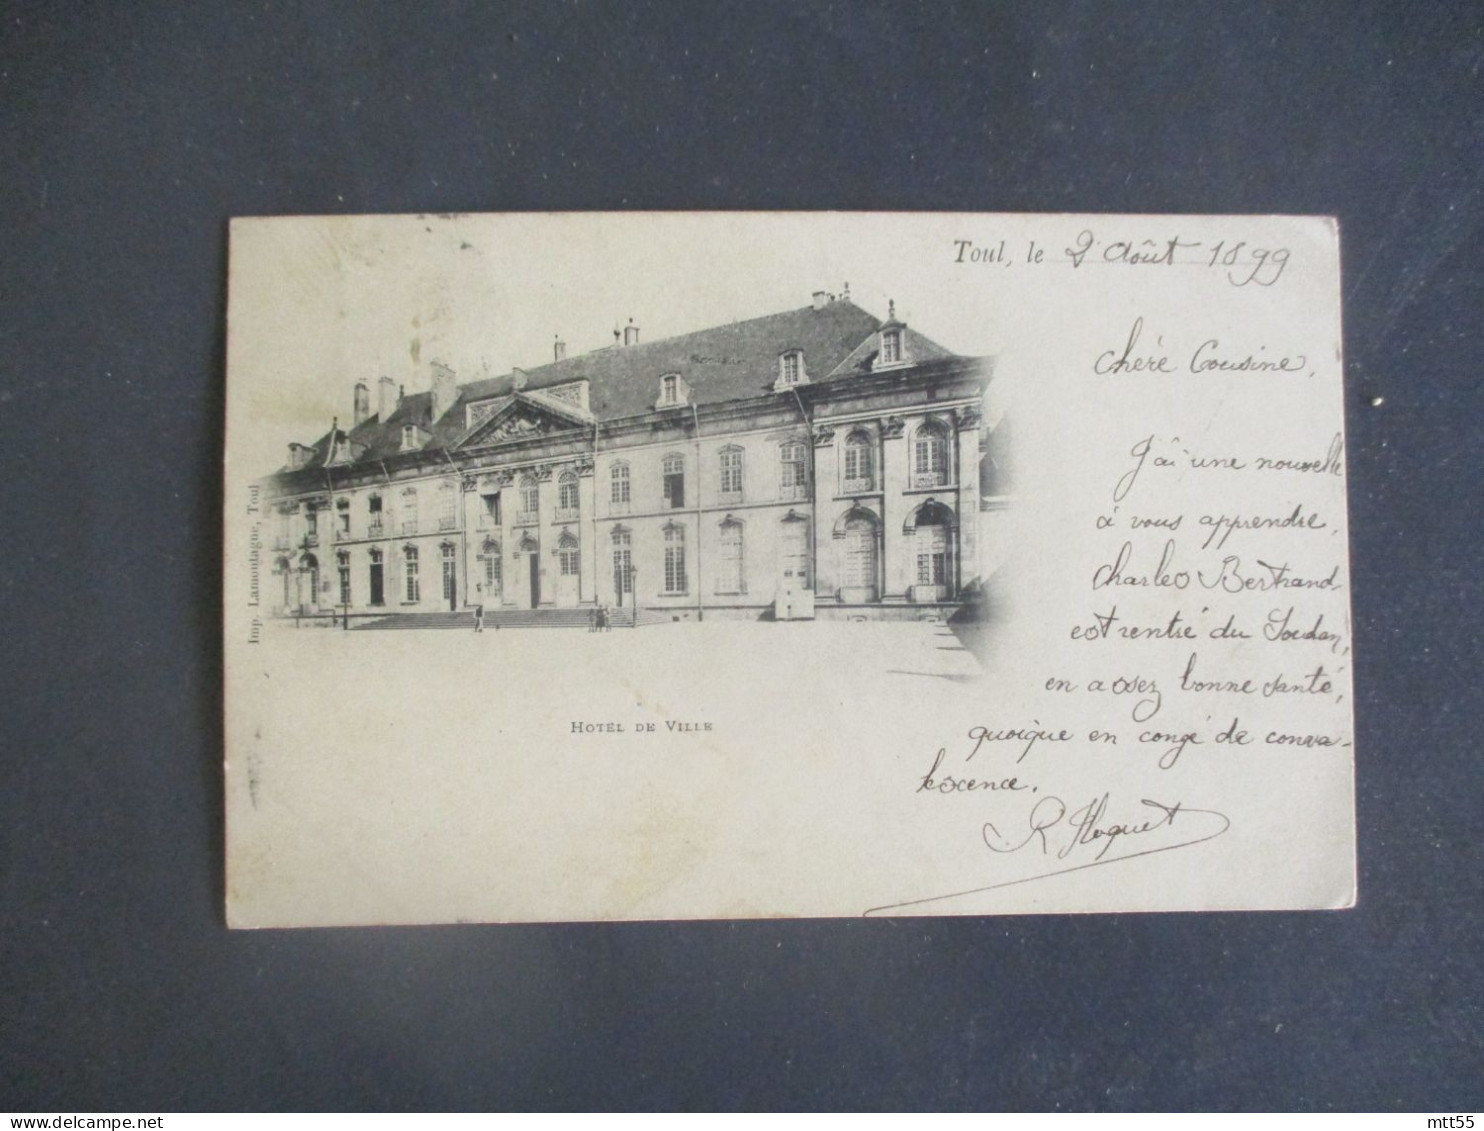 Toul, le 2 Août 1899
Chère Cousine,
J'ai une nouvelle
à vous apprendre,
Charles Bertrand
est rentré du Soudan,
en assez bonne santé,
quoique en congé de conva-
lescence.
R Hoquet
Hotel de Ville
Imp. Lamontagne, Toul
mtt55